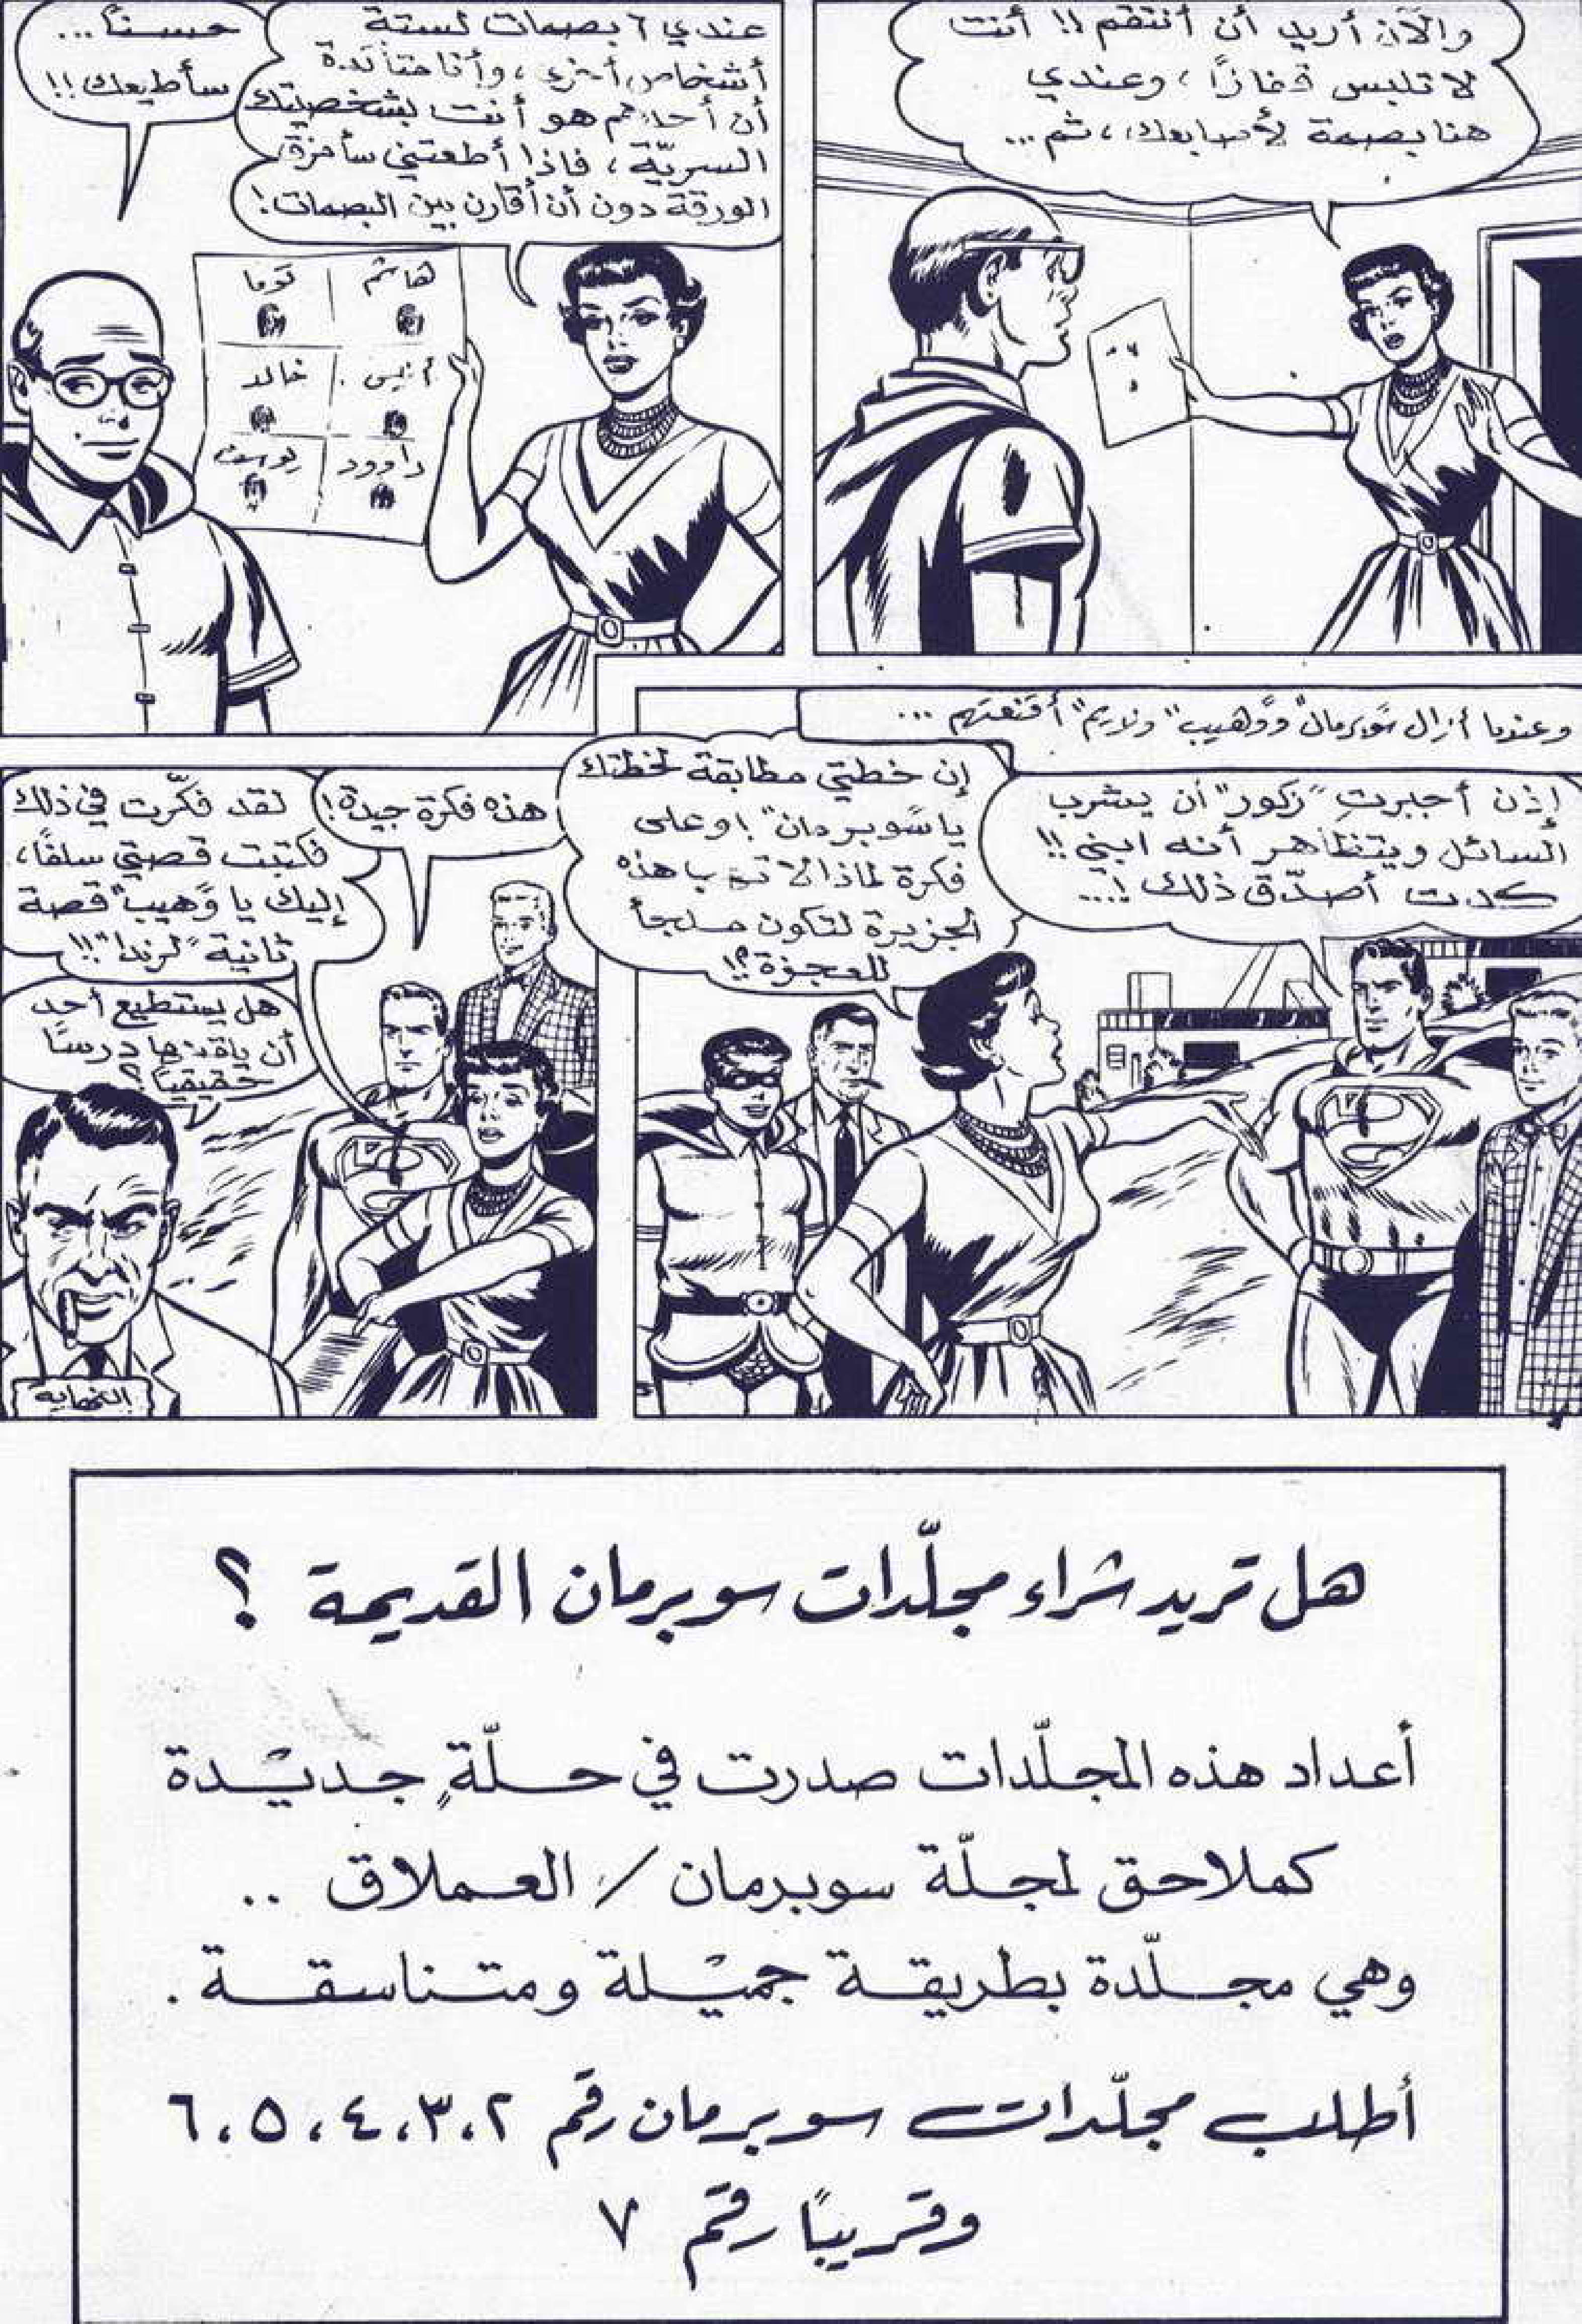 والآن أريد أن أنتقم !! أنت
لا تلبس قفازًا ، وعندي
هنا بصمة لأصابعك ، ثم ...
عندي ٦ بصمات لستة
أشخاص أخرى ، وأنا متأكدة
أن أحدهم هو أنت بشخصيتك
السريّة ، فاذا أطعتني سأمزق
الورقة دون أن أقارن بين البصمات !
حسنًا ...
سأطيعك !!
هاشم
توما
أنيس
خالد
داوود
يوسف
وعندما أزال سوبرمان "ووهيب" ورلايم" أقنعتهم ...
إذن أجبرتِ "زكور" أن يشرب
السائل ويتظاهر أنه ابني !!
كدت أصدّق ذلك !...
إن خطتي مطابقة لخطتك
يا سوبرمان" ! وعلى
فكرة لماذا لا تهب هذه
الجزيرة لتكون ملجأ
للعجزة ؟!
هذه فكرة جيدة !
لقد فكّرت في ذلك
فكتبت قصتي سلفًا ،
إليك يا وهيب" قصة
ثانية "لرندا" !!
هل يستطيع أحد
أن يلقنها درسًا
حقيقيًا ؟
النهاية
هل تريد شراء مجلّدات سوبرمان القديمة ؟
أعداد هذه المجلّدات صدرت في حلّةٍ جديدة
كملاحق لمجلّة سوبرمان / العملاق ..
وهي مجلّدة بطريقة جميلة ومتناسقة .
أطلب مجلّدات سوبرمان رقم ٢ ، ٣ ، ٤ ، ٥ ، ٦
وقريبًا رقم ٧